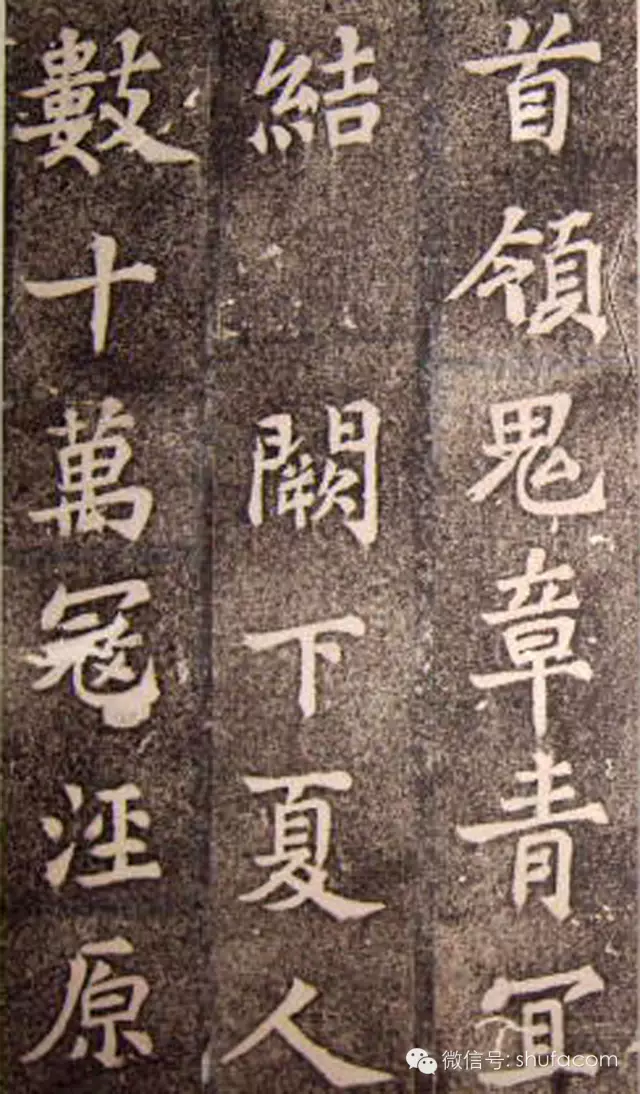 首領鬼章青冝
結 闕下夏人
數十萬冦涇原
微信号: shufacom